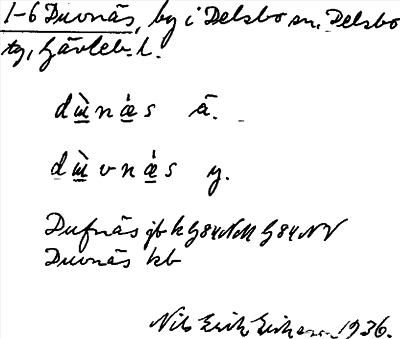 1-6 Duvnäs, by i Delsbo sn, Delsbo
tg, Gävleb. l.
dùnǽs ä.
dùvnǽs y.
Dufnäs jb k G84NM G84NV
Duvnäs kb
Nils Erik Eriksson 1936.